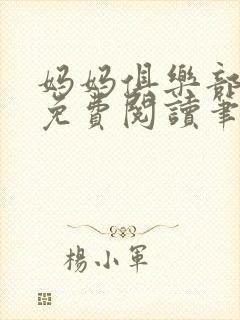 妈妈俱樂部
免費閱讀筆
楊小軍